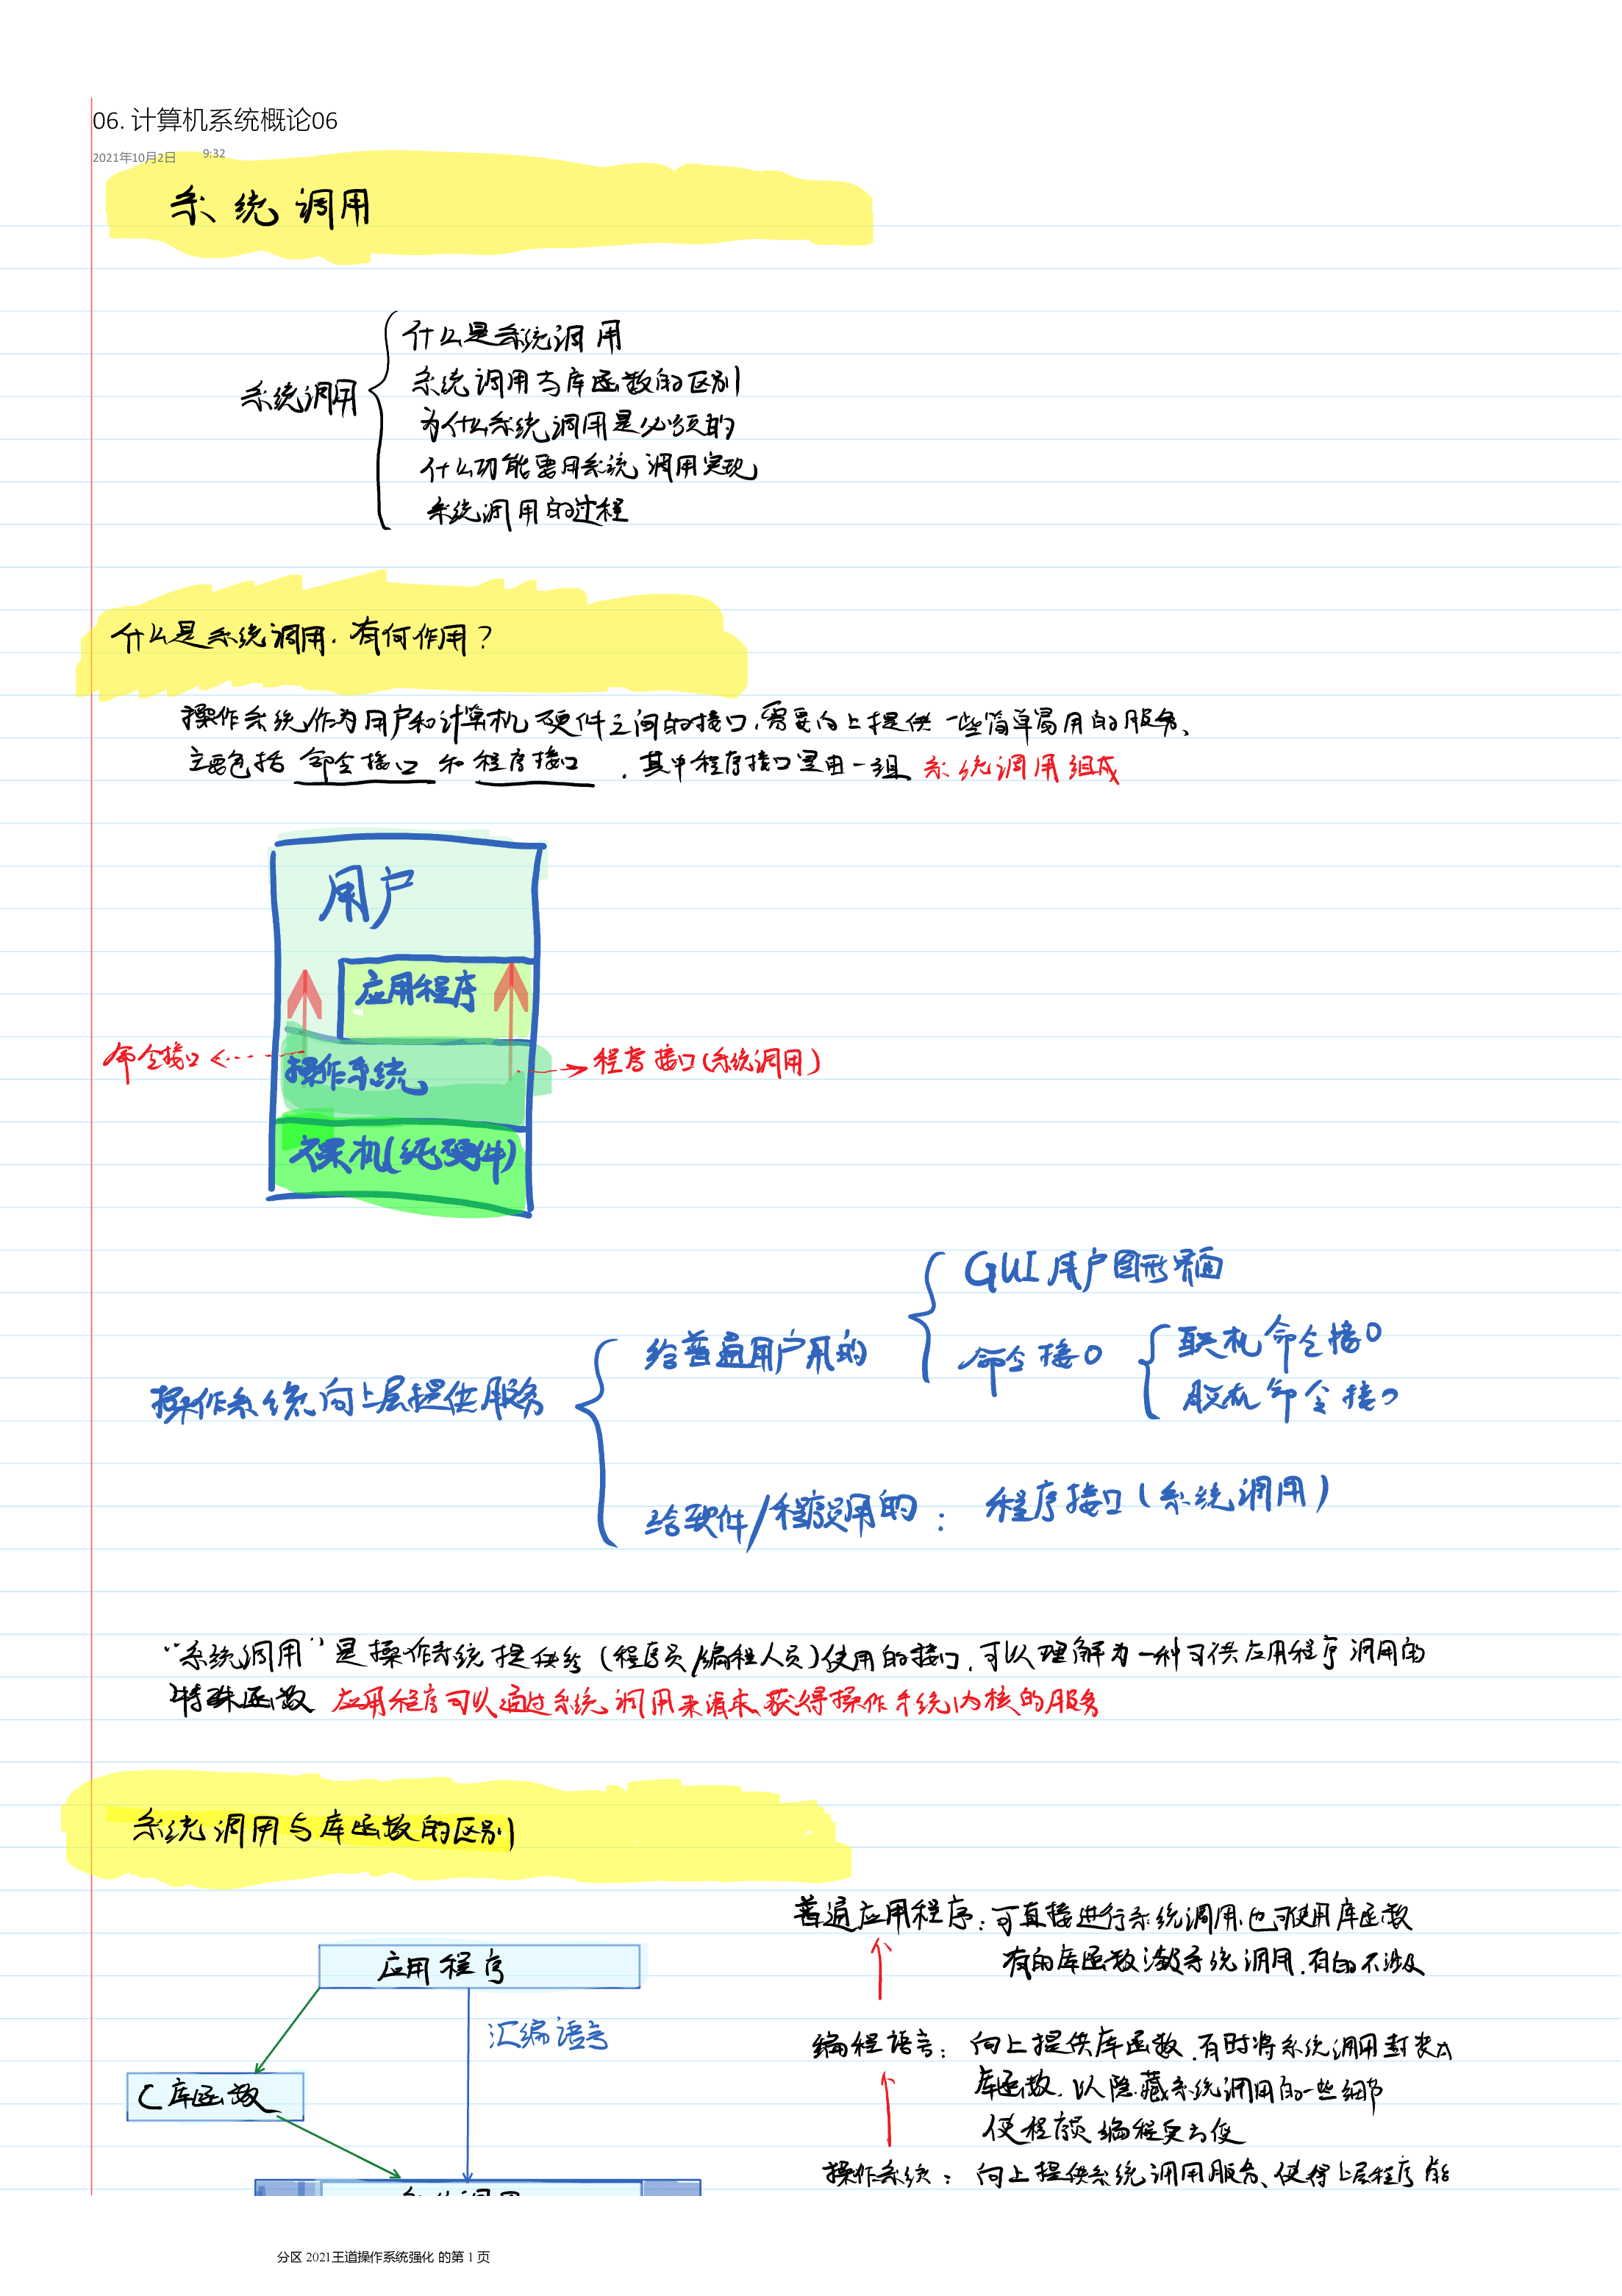 06. 计算机系统概论06
2021年10月2日 9:32
系统调用
什么是系统调用
系统调用与库函数的区别
系统调用
为什么系统调用是必须的
什么功能需用系统调用实现
系统调用的过程
什么是系统调用.有何作用?
操作系统作为用户和计算机硬件之间的接口,需要向上提供一些简单易用的服务、
主要包括 命令接口 和 程序接口 .其中程序接口是由一组 系统调用组成
用户
应用程序
命令接口
操作系统
程序接口(系统调用)
裸机(纯硬件)
GUI 用户图形界面
给普通用户用的
命令接口
联机命令接口
脱机命令接口
操作系统向上层提供服务
给软件/程序员用的: 程序接口(系统调用)
“系统调用”是操作系统提供给(程序员/编程人员)使用的接口,可以理解为一种可供应用程序调用的
特殊函数 应用程序可以通过系统调用来请求、获得操作系统内核的服务
系统调用与库函数的区别
普通应用程序:可直接进行系统调用,也可使用库函数
有的库函数涉及系统调用,有的不涉及
应用程序
汇编语言
C库函数
编程语言: 向上提供库函数.有时将系统调用封装成
库函数,以隐藏系统调用的一些细节
使程序员编程更方便
操作系统: 向上提供系统调用服务、使得上层程序能
系统调用
分区 2021王道操作系统强化 的第 1 页